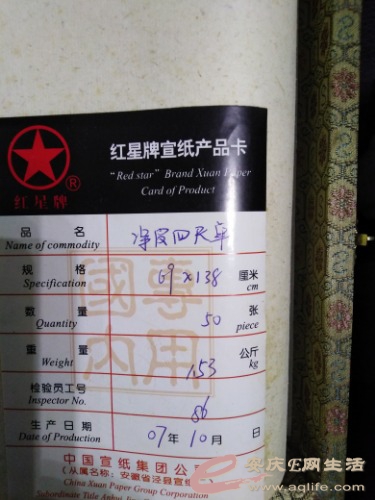 红星牌宣纸产品卡
"Red star" Brand Xuan Paper
Card of Product
红星牌®
品名 净皮四尺单
Name of commodity
规格 69×138 厘米
Specification cm
数量 50 张
Quantity piece
重量 1.53 公斤
Weight kg
检验员工号 86
Inspector No.
生产日期 07年10月 日
Date of Production
國內專用
中国宣纸集团公
(从属名称:安徽省泾县宣纸
China Xuan Paper Group Corporation
Subordinate Title Anhui
安庆E网生活
www.aqlife.com